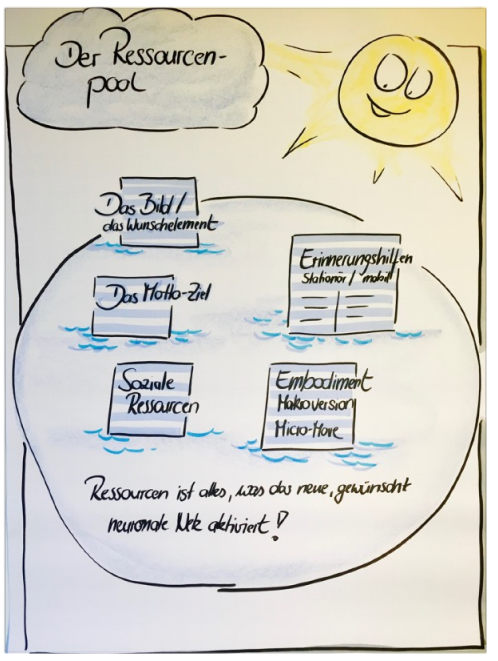 Der Ressourcen-
pool
Das Bild /
das Wunschelement
Das Motto-Ziel
Soziale
Ressourcen
Erinnerungshilfen
Stationär / mobil
Embodiment
Makroversion
Micro-Move
Ressourcen ist alles, was das neue, gewünscht
neuronale Netz aktiviert!